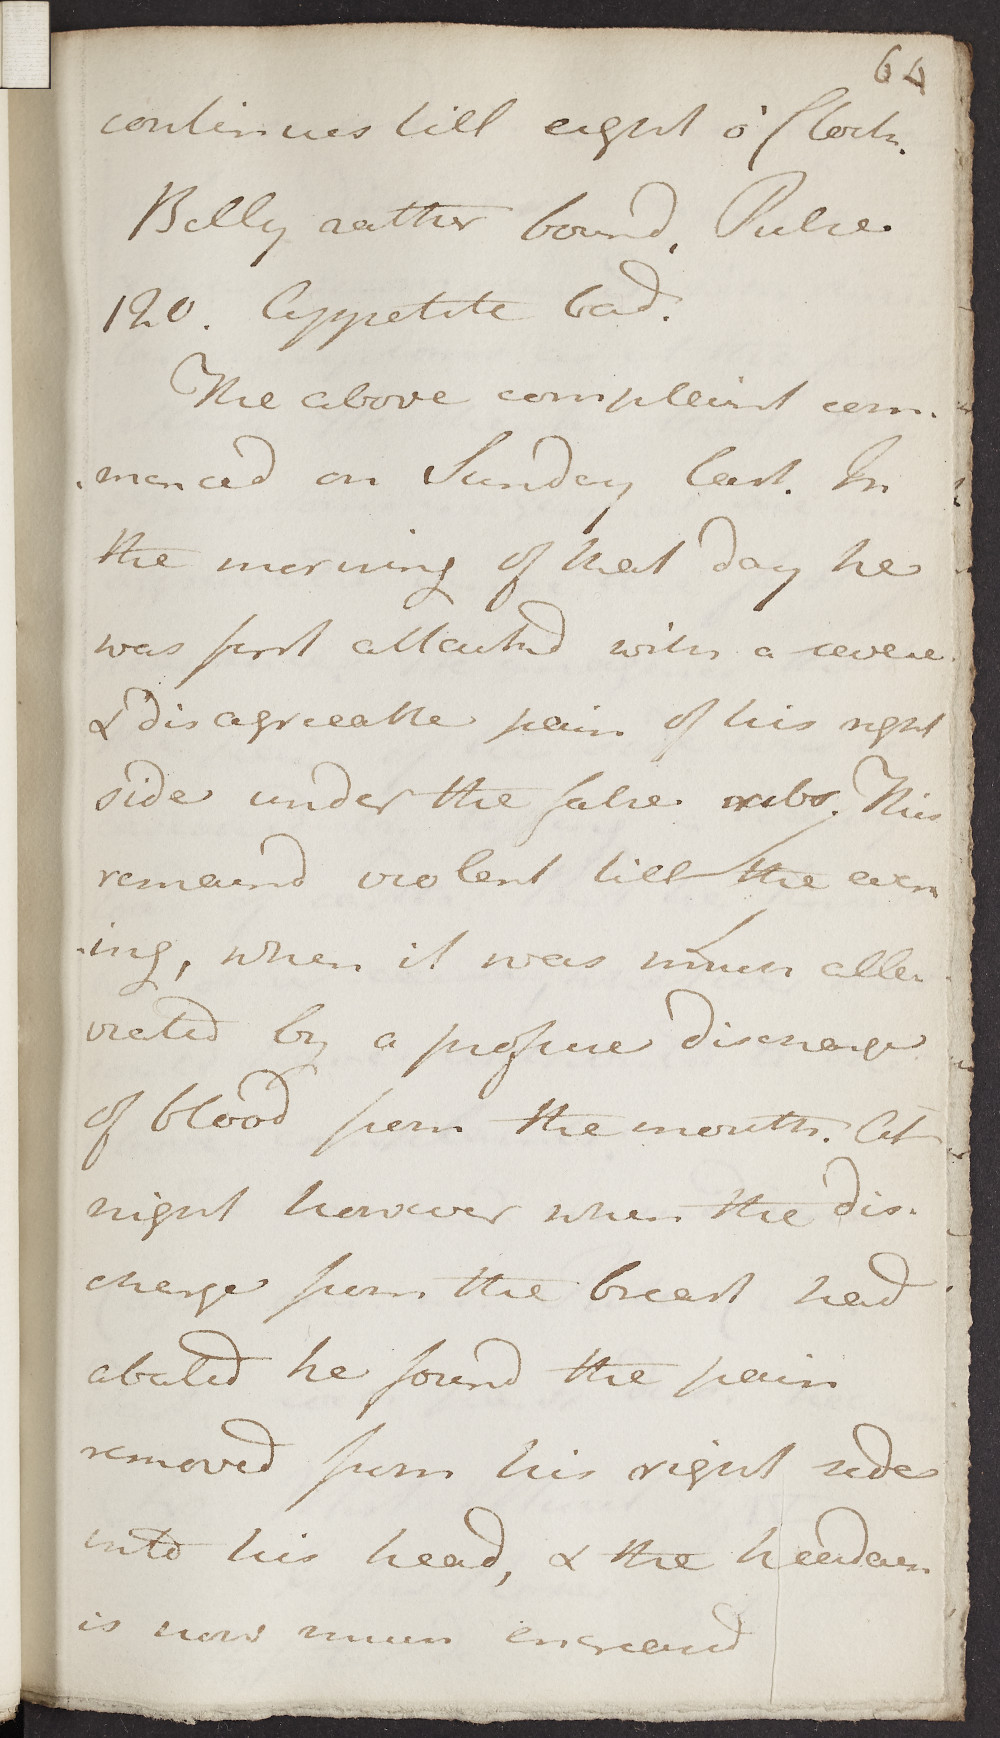 64
continues till eight o'Clock.
Belly rather bound, Pulse
120. Appetite bad.
The above complaint com-
-menced on Sunday last. In
the morning of that day he
was first attacked with a severe
& disagreeable pain of his right
side under the false ribs. This
remaind violent till the even
-ing, when it was much alle-
viated by a profuse discharge
of blood from the mouth. At
night however when the dis-
charge from the breast had
abated he found the pain
removed from his right side
into his head, & the headach
is now much encreasd